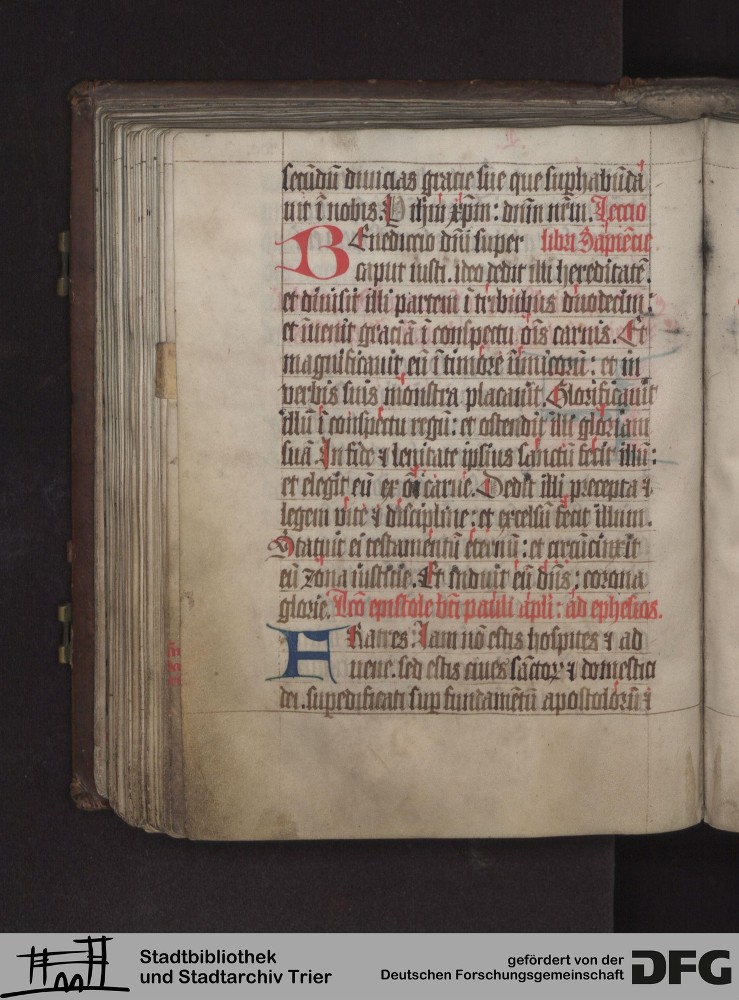 secūdū diuicias gracie sue que suphabūda
uit ī nobis. P ihm xpm: dnm nrm. Leccio
BEnediccio dni super libri Sapiēcie
caput iusti. ideo dedit illi hereditatē.
et diuisit illi partem ī tribubus duodecim:
et īuenit graciā ī conspectu oīs carnis. Et
magnificauit eū ī timore inimicorū: et in
verbis suis monstra placauit. Glorificauit
illū ī conspectu regū: et ostendit illi gloriam
suā. In fide ⁊ lenitate ipsius sanctū fecit illū:
et elegit eū ex oī carne. Dedit illi precepta ⁊
legem vite ⁊ discipline: et excelsū fecit illum.
Statuit ei testamentū eternū: et circūcinxit
eū zona iusticie. Et induit eū dns: corona
glorie. Lcō epistole bti pauli apli: ad ephesios.
FRatres: Iam nō estis hospites ⁊ ad
uene. sed estis ciues sāctoꝝ ⁊ domestici
dei. supedificati sup fundamētū apostolorū ⁊
Stadtbibliothek
und Stadtarchiv Trier
gefördert von der
Deutschen Forschungsgemeinschaft
DFG